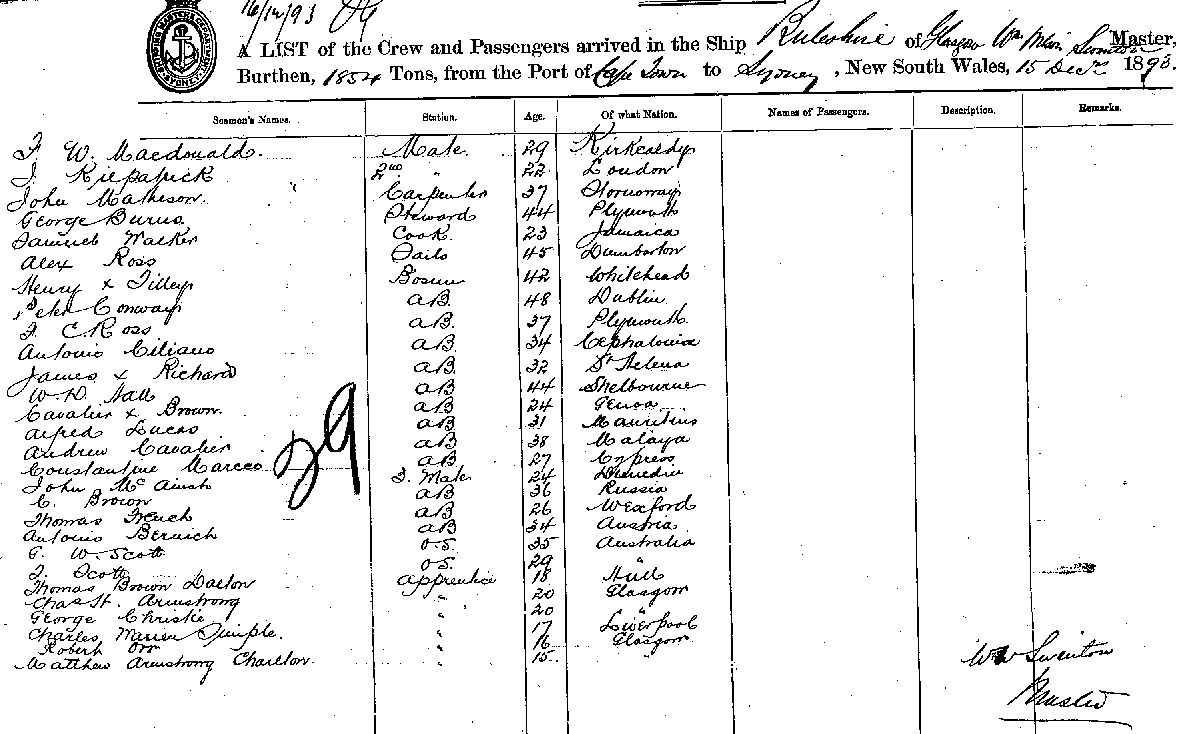 16/12/93
A LIST of the Crew and Passengers arrived in the Ship Buteshire of Glasgow Wm Swinton Master,
Burthen, 1854 Tons, from the Port of Cape Town to Sydney, New South Wales, 15 Decr 1893.
Seamen's Names. Station. Age. Of what Nation. Names of Passengers. Description. Remarks.
J. W. Macdonald. Mate. 29 Kirkcaldy
J. Kilpatrick 2nd " 22 London
John Matheson. Carpenter 37 Stornoway
George Burns. Steward 44 Plymouth
Samuel Walker Cook. 23 Jamaica
Alex Ross Sails 45 Dumbarton
Henry x Tilley Bosun 42 Whitehead
Peter Conway A.B. 48 Dublin
J. C. Ross A.B. 37 Plymouth.
Antonio Ciliano A.B. 34 Cephalonia
James x Richard A.B. 32 St Helena
W. D. Hall A.B. 44 Shelbourne
Cavalier x Brown. A.B. 24 Genoa
Alfred Lucas A.B. 31 Mauritius
Andrew Cavalier A.B. 38 Malaya
Constantine Marcco A.B. 27 Cypress
John Mc Ainsh 3. Mate. 24 Dunedin
C. Brown A.B. 36 Russia
Thomas French A.B. 26 Wexford
Antonio Bernich A.B. 34 Austria
G. W. Scott O.S. 35 Australia
J. Scott O.S. 29 "
Thomas Brown Dalton Apprentice 18 Hull
Chas St. Armstrong " 20 Glasgow
George Christie " 20 "
Charles Dimple. " 17 Liverpool
Robert Orr " 16 Glasgow
Matthew Armstrong Charlton. " 15 "
29
W W Swinton
Master